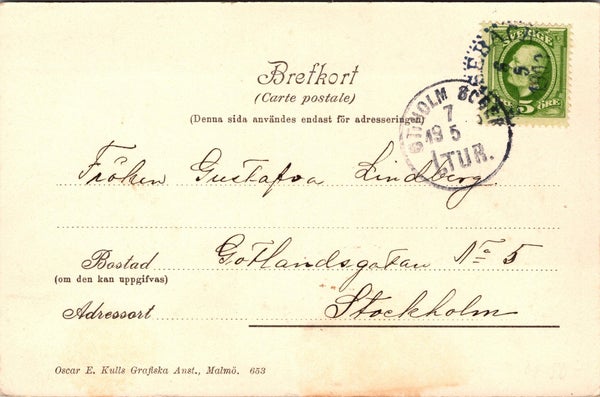 SVERIGE
5 ÖRE
Brefkort
(Carte postale)
(Denna sida användes endast för adresseringen)
STHOLM
7
19 5
1.TUR.
Fröken Gustafva Lindberg.
Bostad Gotlandsgatan No 5
(om den kan uppgifvas)
Adressort Stockholm
Oscar E. Kulls Grafiska Anst., Malmö. 653